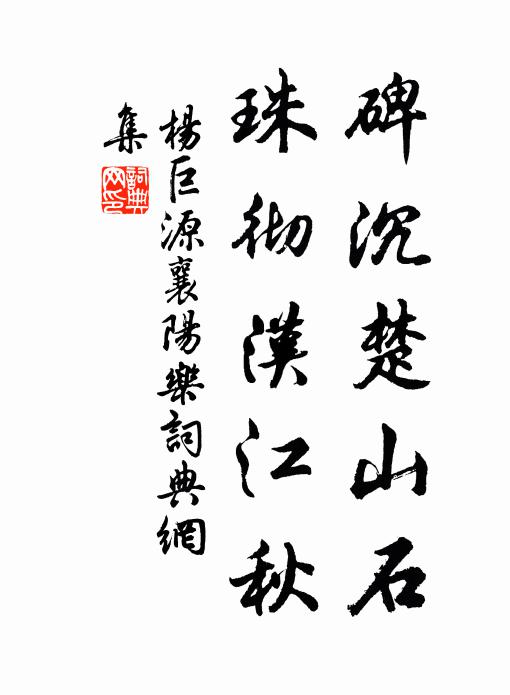 碑沉楚山石
珠彻漢江秋
楊巨源襄陽樂詞典網
集
詞典
网印